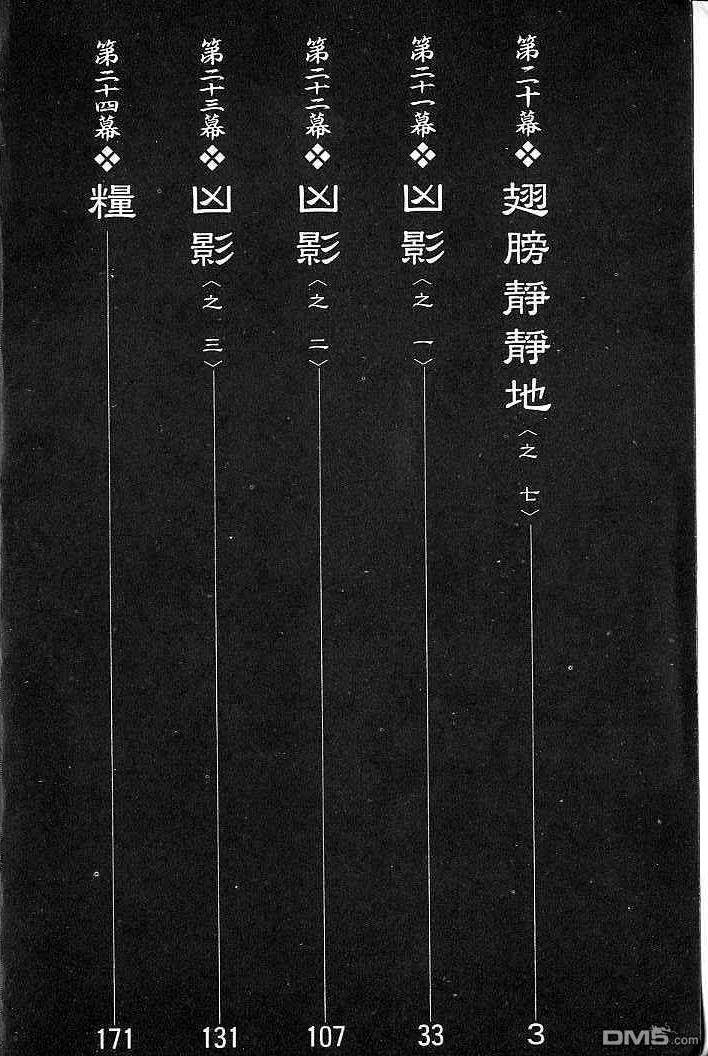 第二十幕❖翅膀靜靜地〈之七〉3
第二十一幕❖凶影〈之一〉33
第二十二幕❖凶影〈之二〉107
第二十三幕❖凶影〈之三〉131
第二十四幕❖糧171
DM5.com